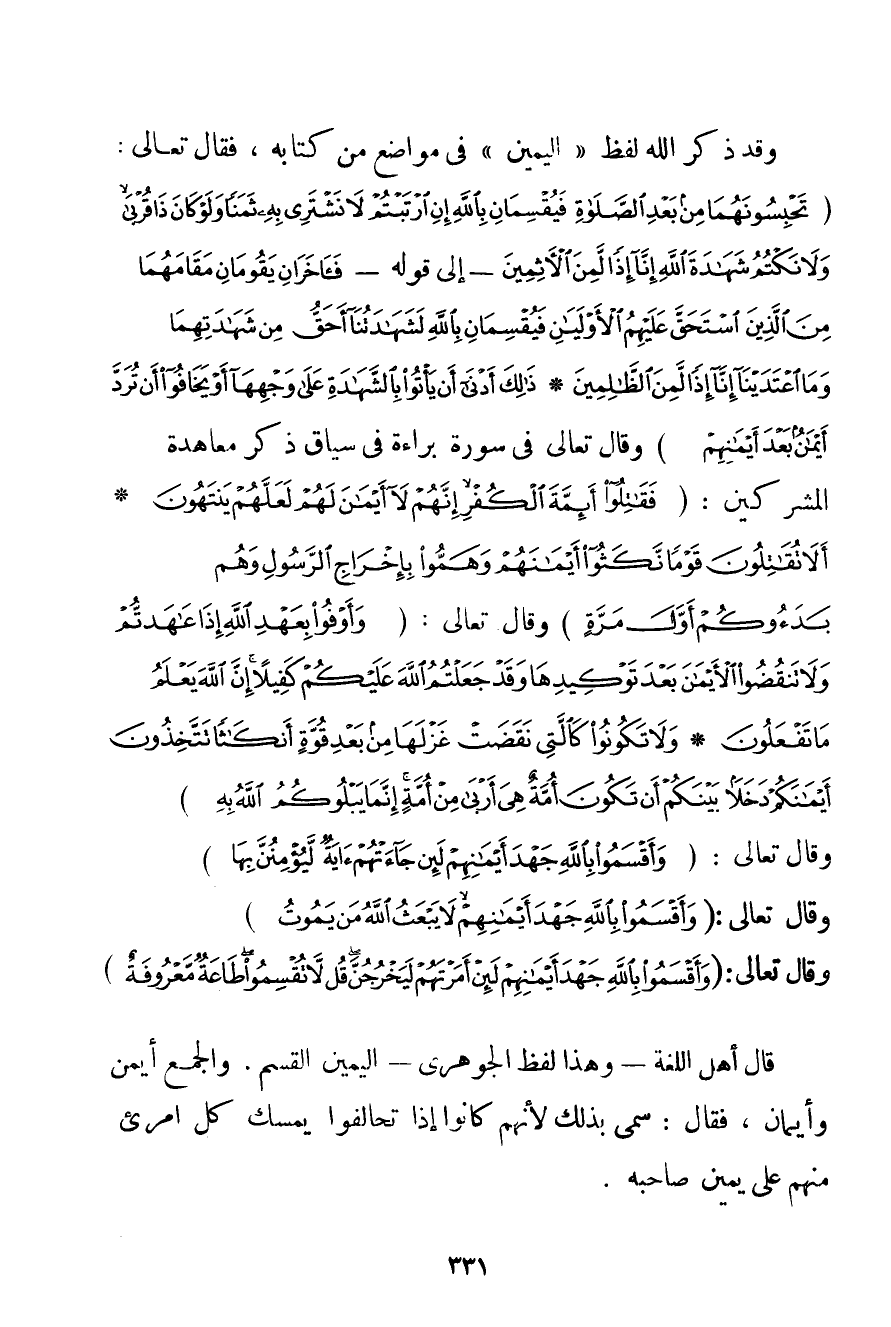 وقد ذكر الله لفظ « اليمين » فى مواضع من كتابه ، فقال تعالى :
( تَحْبِسُونَهُمَا مِنۢ بَعْدِ ٱلصَّلَوٰةِ فَيُقْسِمَانِ بِٱللَّهِ إِنِ ٱرْتَبْتُمْ لَا نَشْتَرِى بِهِۦ ثَمَنًا وَلَوْ كَانَ ذَا قُرْبَىٰ ۙ
وَلَا نَكْتُمُ شَهَٰدَةَ ٱللَّهِ إِنَّآ إِذًا لَّمِنَ ٱلْأٓثِمِينَ – إلى قوله – فَـَٔاخَرَانِ يَقُومَانِ مَقَامَهُمَا
مِنَ ٱلَّذِينَ ٱسْتَحَقَّ عَلَيْهِمُ ٱلْأَوْلَيَٰنِ فَيُقْسِمَانِ بِٱللَّهِ لَشَهَٰدَتُنَآ أَحَقُّ مِن شَهَٰدَتِهِمَا
وَمَا ٱعْتَدَيْنَآ إِنَّآ إِذًا لَّمِنَ ٱلظَّٰلِمِينَ * ذَٰلِكَ أَدْنَىٰٓ أَن يَأْتُوا۟ بِٱلشَّهَٰدَةِ عَلَىٰ وَجْهِهَآ أَوْ يَخَافُوٓا۟ أَن تُرَدَّ
أَيْمَٰنٌۢ بَعْدَ أَيْمَٰنِهِمْ ) وقال تعالى فى سورة براءة فى سياق ذكر معاهدة
المشركين : ( فَقَٰتِلُوٓا۟ أَئِمَّةَ ٱلْكُفْرِ ۙ إِنَّهُمْ لَآ أَيْمَٰنَ لَهُمْ لَعَلَّهُمْ يَنتَهُونَ *
أَلَا تُقَٰتِلُونَ قَوْمًا نَّكَثُوٓا۟ أَيْمَٰنَهُمْ وَهَمُّوا۟ بِإِخْرَاجِ ٱلرَّسُولِ وَهُم
بَدَءُوكُمْ أَوَّلَ مَرَّةٍ ) وقال تعالى : ( وَأَوْفُوا۟ بِعَهْدِ ٱللَّهِ إِذَا عَٰهَدتُّمْ
وَلَا تَنقُضُوا۟ ٱلْأَيْمَٰنَ بَعْدَ تَوْكِيدِهَا وَقَدْ جَعَلْتُمُ ٱللَّهَ عَلَيْكُمْ كَفِيلًا ۚ إِنَّ ٱللَّهَ يَعْلَمُ
مَا تَفْعَلُونَ * وَلَا تَكُونُوا۟ كَٱلَّتِى نَقَضَتْ غَزْلَهَا مِنۢ بَعْدِ قُوَّةٍ أَنكَٰثًا تَتَّخِذُونَ
أَيْمَٰنَكُمْ دَخَلًۢا بَيْنَكُمْ أَن تَكُونَ أُمَّةٌ هِىَ أَرْبَىٰ مِنْ أُمَّةٍ ۚ إِنَّمَا يَبْلُوكُمُ ٱللَّهُ بِهِ )
وقال تعالى : ( وَأَقْسَمُوا۟ بِٱللَّهِ جَهْدَ أَيْمَٰنِهِمْ لَئِن جَآءَتْهُمْ ءَايَةٌ لَّيُؤْمِنُنَّ بِهَا )
وقال تعالى : ( وَأَقْسَمُوا۟ بِٱللَّهِ جَهْدَ أَيْمَٰنِهِمْ ۙ لَا يَبْعَثُ ٱللَّهُ مَن يَمُوتُ )
وقال تعالى : ( وَأَقْسَمُوا۟ بِٱللَّهِ جَهْدَ أَيْمَٰنِهِمْ لَئِنْ أَمَرْتَهُمْ لَيَخْرُجُنَّ ۖ قُل لَّا تُقْسِمُوا۟ ۖ طَاعَةٌ مَّعْرُوفَةٌ )
قال أهل اللغة – وهذا لفظ الجوهرى – اليمين القسم . والجمع أيمن
وأيمان ، فقال : سمى بذلك لأنهم كانوا إذا تحالفوا يمسك كل امرئ
منهم على يمين صاحبه .
٣٣١